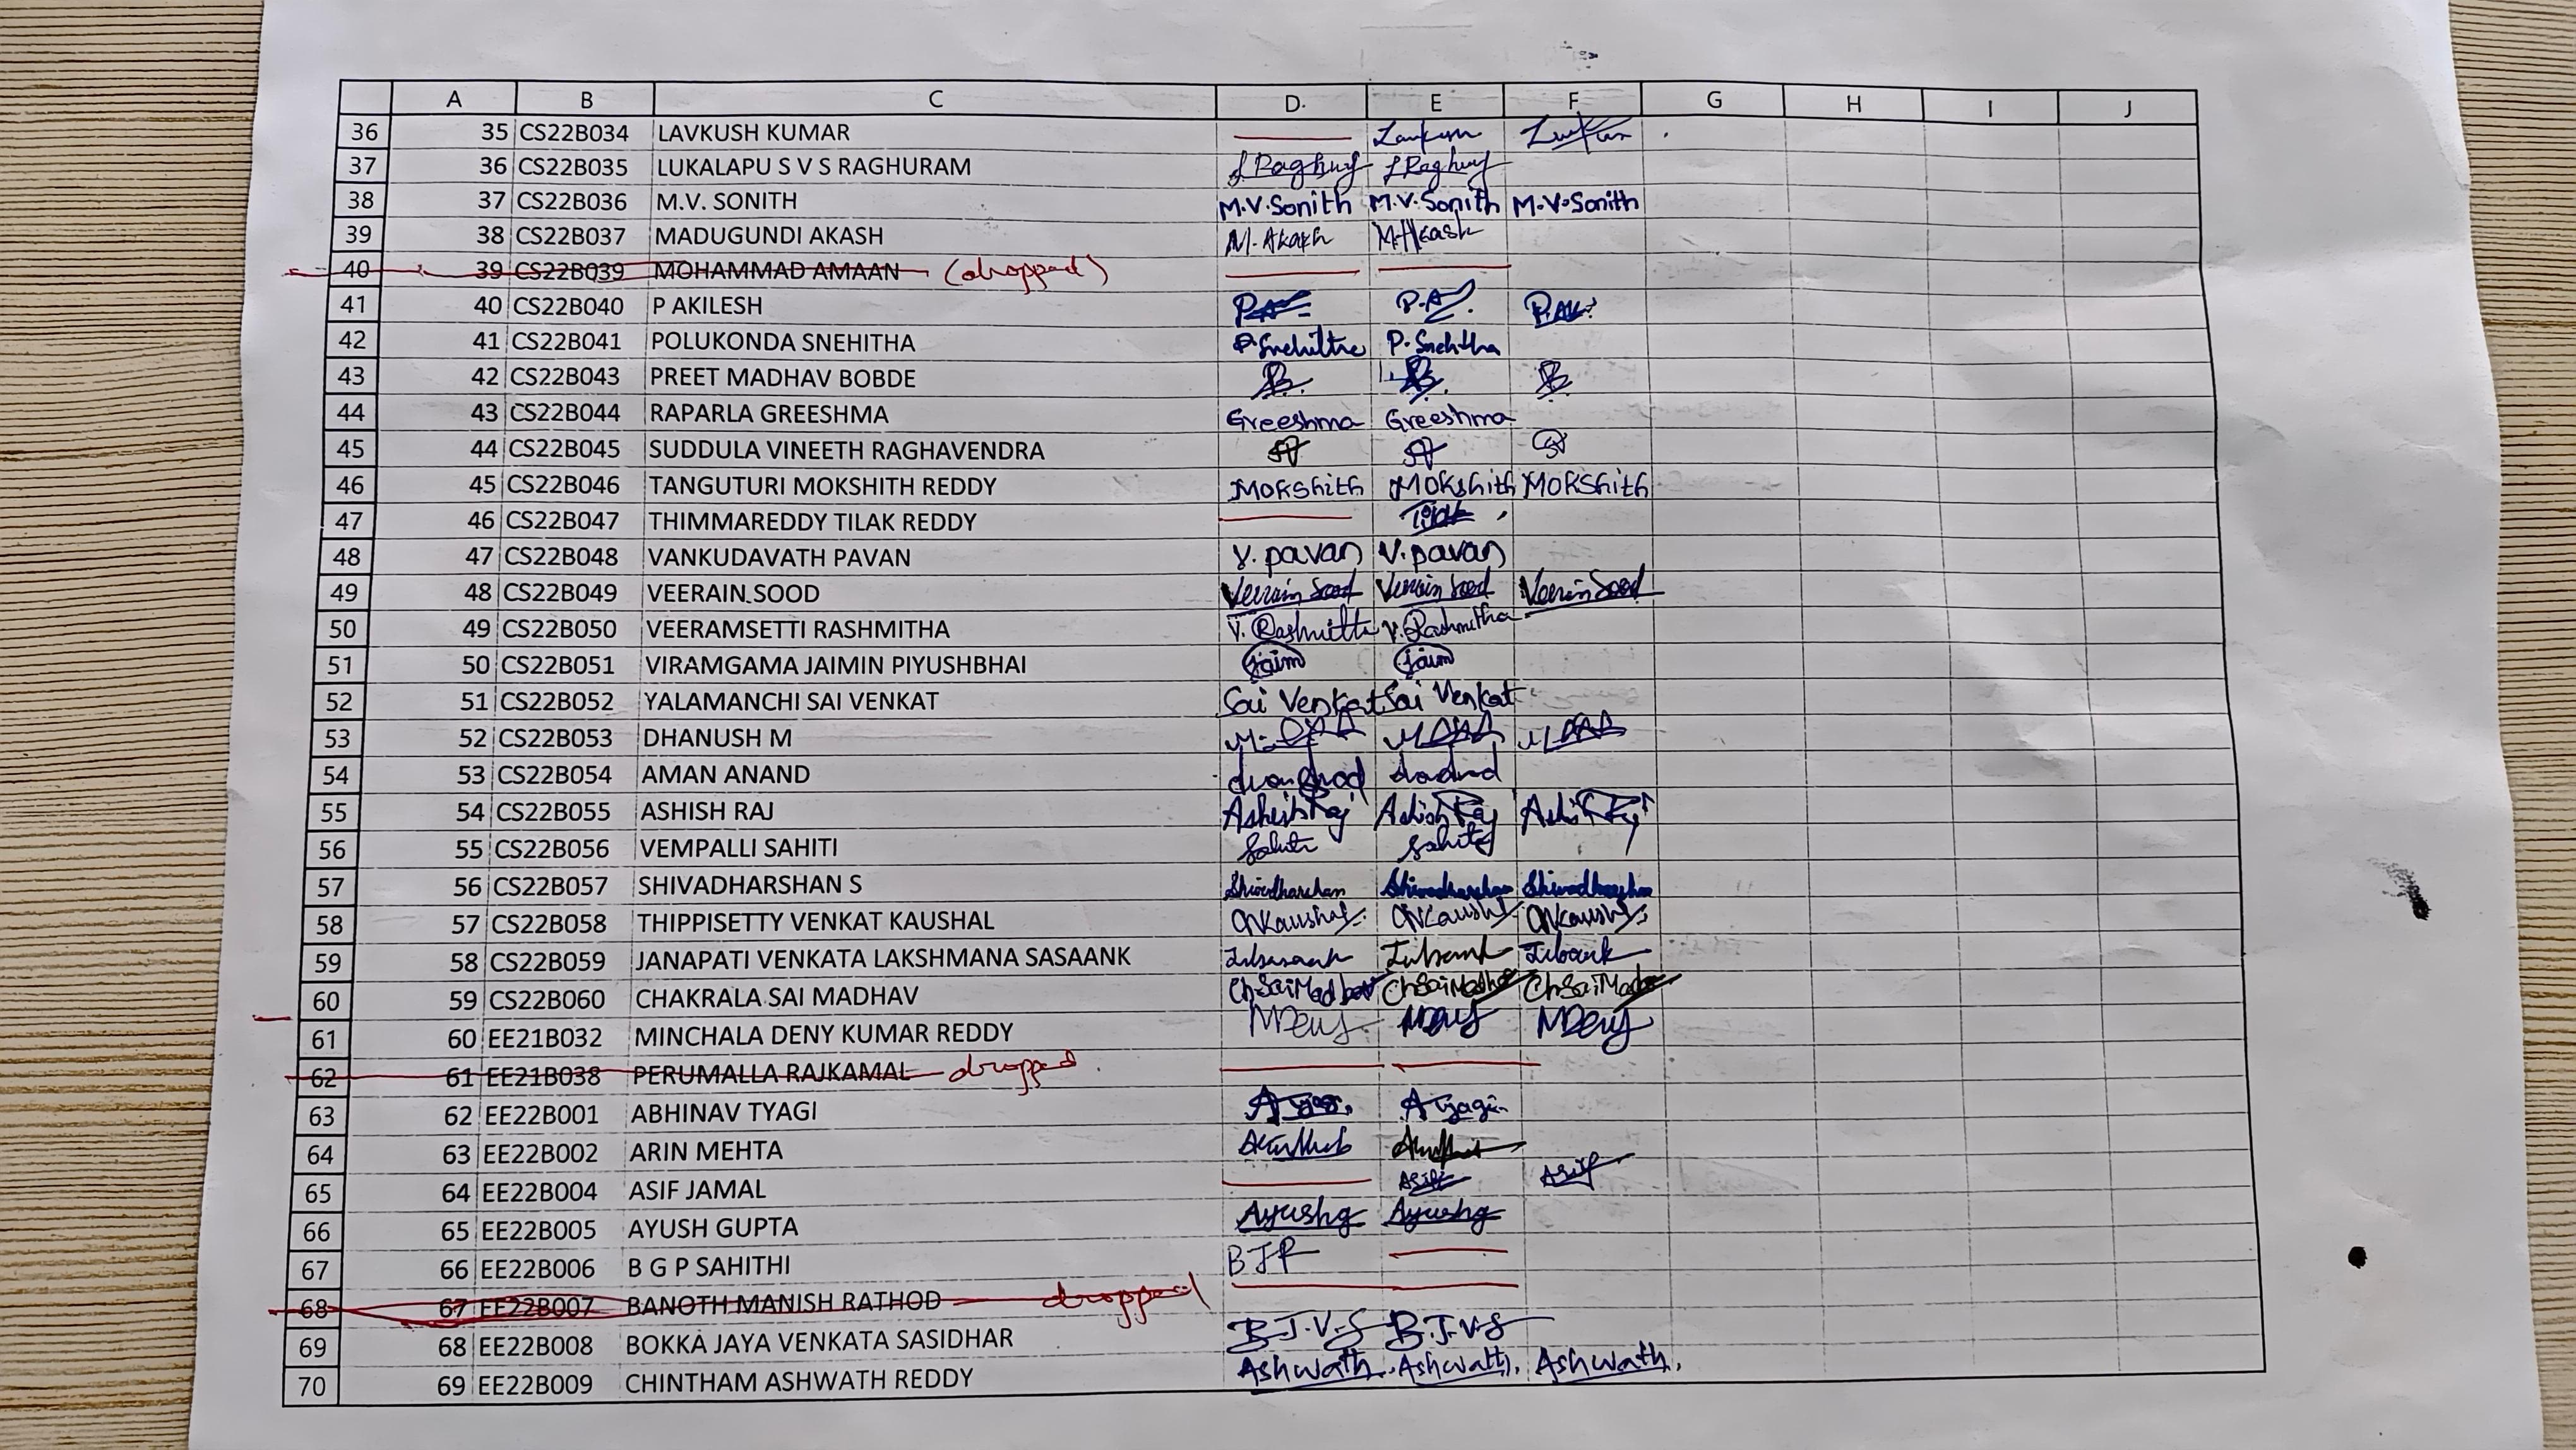 A B C D. E F G H I J
36 35 CS22B034 LAVKUSH KUMAR
37 36 CS22B035 LUKALAPU S V S RAGHURAM
38 37 CS22B036 M.V. SONITH M.V.Sonith M.V.Sonith M.V.Sonith
39 38 CS22B037 MADUGUNDI AKASH M.Akash M.Akash
40 39 CS22B039 MOHAMMAD AMAAN (dropped)
41 40 CS22B040 P AKILESH
42 41 CS22B041 POLUKONDA SNEHITHA
43 42 CS22B043 PREET MADHAV BOBDE
44 43 CS22B044 RAPARLA GREESHMA Greeshma Greeshma
45 44 CS22B045 SUDDULA VINEETH RAGHAVENDRA
46 45 CS22B046 TANGUTURI MOKSHITH REDDY Mokshith Mokshith Mokshith
47 46 CS22B047 THIMMAREDDY TILAK REDDY
48 47 CS22B048 VANKUDAVATH PAVAN V. pavan V. pavan
49 48 CS22B049 VEERAIN SOOD Veerain Sood Veerain Sood Veerain Sood
50 49 CS22B050 VEERAMSETTI RASHMITHA V. Rashmitha V. Rashmitha
51 50 CS22B051 VIRAMGAMA JAIMIN PIYUSHBHAI Jaim Jaim
52 51 CS22B052 YALAMANCHI SAI VENKAT Sai Venkat Sai Venkat
53 52 CS22B053 DHANUSH M
54 53 CS22B054 AMAN ANAND
55 54 CS22B055 ASHISH RAJ
56 55 CS22B056 VEMPALLI SAHITI Sahiti Sahiti
57 56 CS22B057 SHIVADHARSHAN S Shivadharshan Shivadharshan Shivadharshan
58 57 CS22B058 THIPPISETTY VENKAT KAUSHAL
59 58 CS22B059 JANAPATI VENKATA LAKSHMANA SASAANK
60 59 CS22B060 CHAKRALA SAI MADHAV ChSaiMadhav ChSaiMadhav ChSaiMadhav
61 60 EE21B032 MINCHALA DENY KUMAR REDDY MDeny MDeny MDeny
62 61 EE21B038 PERUMALLA RAJKAMAL dropped
63 62 EE22B001 ABHINAV TYAGI
64 63 EE22B002 ARIN MEHTA
65 64 EE22B004 ASIF JAMAL Asif Asif
66 65 EE22B005 AYUSH GUPTA Ayushg Ayushg
67 66 EE22B006 B G P SAHITHI
68 67 EE22B007 BANOTH MANISH RATHOD dropped
69 68 EE22B008 BOKKA JAYA VENKATA SASIDHAR B.J.V.S B.J.V.S
70 69 EE22B009 CHINTHAM ASHWATH REDDY Ashwath. Ashwath. Ashwath.